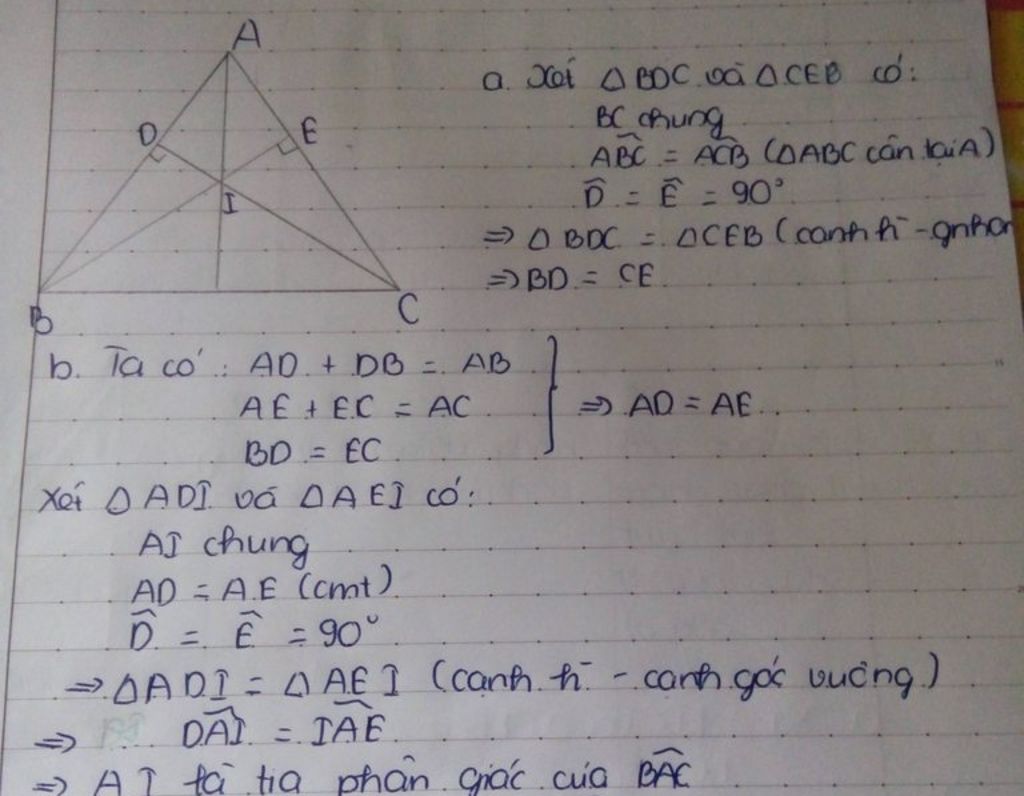 A
D
E
I
B
C
a. Xét △BDC và △CEB có:
BC chung
ABC = ACB (△ABC cân tại A)
D̂ = Ê = 90°
⇒ △BDC = △CEB (cạnh h - gnhọn
⇒ BD = CE
b. Ta có: AD + DB = AB
AE + EC = AC
BD = EC
} ⇒ AD = AE
Xét △ADI và △AEI có:
AI chung
AD = AE (cmt)
D̂ = Ê = 90°
⇒ △ADI = △AEI (cạnh h - cạnh góc vuông)
⇒ DAI = IAE
⇒ AI là tia phân giác của BAC